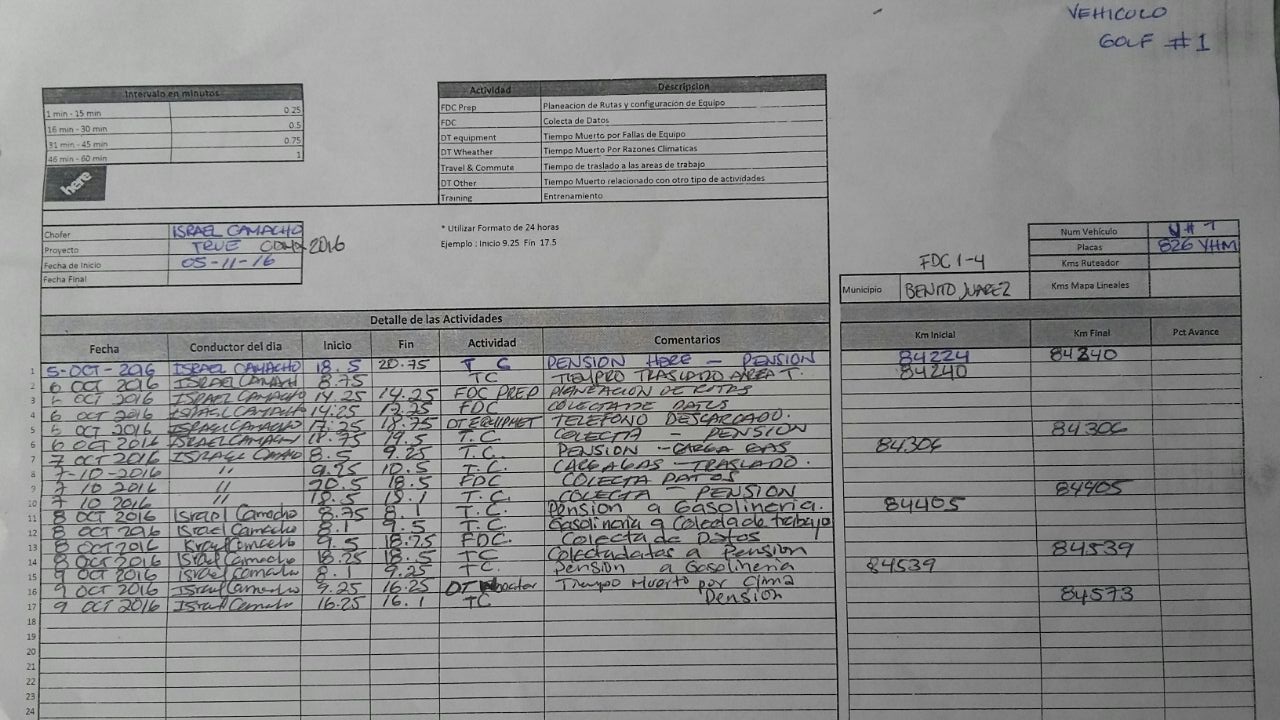 VEHICULO
GOLF #1
Intervalo en minutos
1 min - 15 min 0.25
16 min - 30 min 0.5
31 min - 45 min 0.75
46 min - 60 min 1
here
Actividad Descripcion
FDC Prep Planeacion de Rutas y configuracion de Equipo
FDC Colecta de Datos
DT equipment Tiempo Muerto por Fallas de Equipo
DT Wheather Tiempo Muerto Por Razones Climaticas
Travel & Commute Tiempo de traslado a las areas de trabajo
DT Other Tiempo Muerto relacionado con otro tipo de actividades
Training Entrenamiento
Chofer ISRAEL CAMACHO
Proyecto TRUE CDMX 2016
Fecha de Inicio 05-11-16
Fecha Final
* Utilizar Formato de 24 horas
Ejemplo : Inicio 9.25 Fin 17.5
Num Vehículo
Placas 826 YHM
Kms Ruteador
Kms Mapa Lineales
FDC 1-4
Municipio BENITO JUAREZ
Detalle de las Actividades
Fecha Conductor del dia Inicio Fin Actividad Comentarios Km Inicial Km Final Pct Avance
1 5-OCT-2016 ISRAEL CAMACHO 18.5 20.75 T C PENSION HERE - PENSION 84224 84240
2 6 OCT 2016 ISRAEL CAMACHO 8.75 TC TIEMPRO TRASLADO AREA T. 84240
3 6 OCT 2016 ISRAEL CAMACHO 14.25 14.25 FDC PREP PLANEACION DE RUTAS
4 6 OCT 2016 ISRAEL CAMACHO 14.25 FDC COLECTA DE DATOS
5 6 OCT 2016 ISRAEL CAMACHO 17.25 18.75 DT EQUIPMET TELEFONO DESCARGADO.
6 6 OCT 2016 ISRAEL CAMACHO 18.75 19.5 T.C. COLECTA - PENSION 84306
7 7 OCT 2016 ISRAEL CAMACHO 8.5 9.25 T.C. PENSION - CARGA GAS 84306
8 7-10-2016 " 9.25 10.5 T.C. CARGA GAS - TRASLADO.
9 7 10 2016 " 18.5 FDC COLECTA DATOS
10 7 10 2016 " 18.5 T.C. COLECTA - PENSION 84405
11 8 OCT 2016 Israel Camacho 8.75 8.1 T.C. Pension a Gasolineria. 84405
12 8 OCT 2016 Israel Camacho 8.1 9.5 T.C. Gasolineria a Colecta de trabajo
13 8 OCT 2016 Israel Camacho 9.5 18.25 FDC. Colecta de Datos
14 8 OCT 2016 Israel Camacho 18.25 18.5 TC Colecta datos a Pension 84539
15 9 OCT 2016 Israel Camacho 8. 9.25 TC Pension a Gasolineria 84539
16 9 OCT 2016 Israel Camacho 9.25 16.25 DT Tiempo Muerto por Clima
17 9 OCT 2016 Israel Camacho 16.25 16.1 TC Pension 84573
18
19
20
21
22
23
24